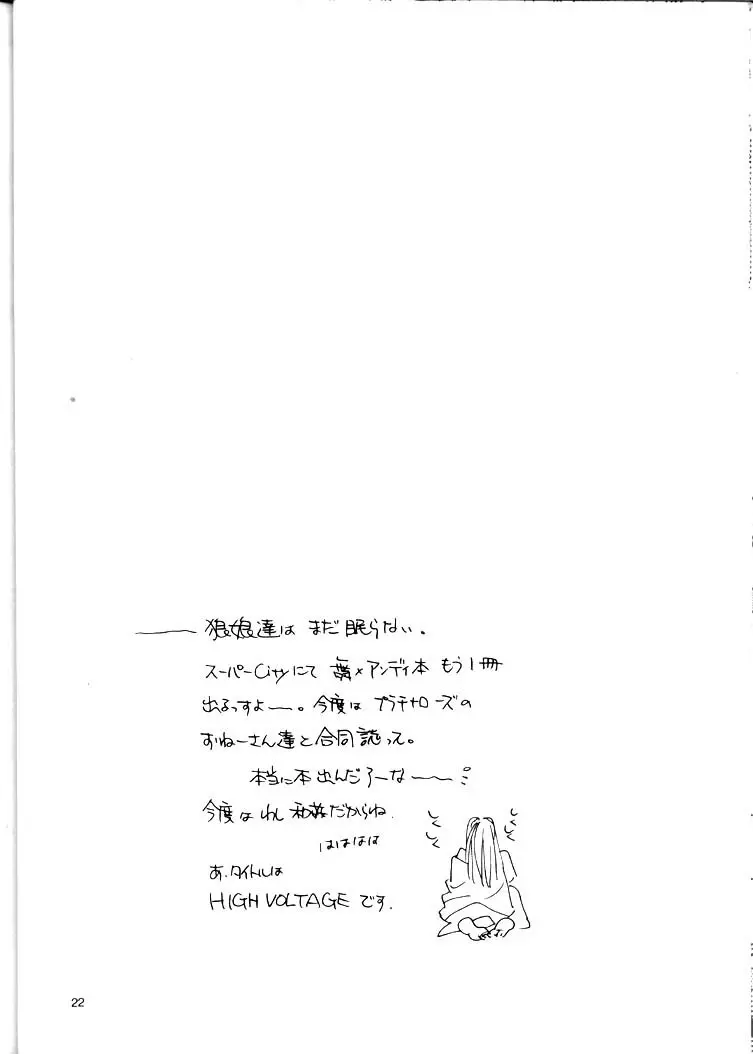 狼娘達は まだ眠らない。
スーパーCityにて ×アンディ本 もう1冊
出るっすよー。今度は プラチナローズの
おねーさん達と合同誌って。
本当に本出んだろーなーーー
今度は わし だからね
はははは
あ.タイトルは
HIGH VOLTAGE です.
しくしく
しくしく
22